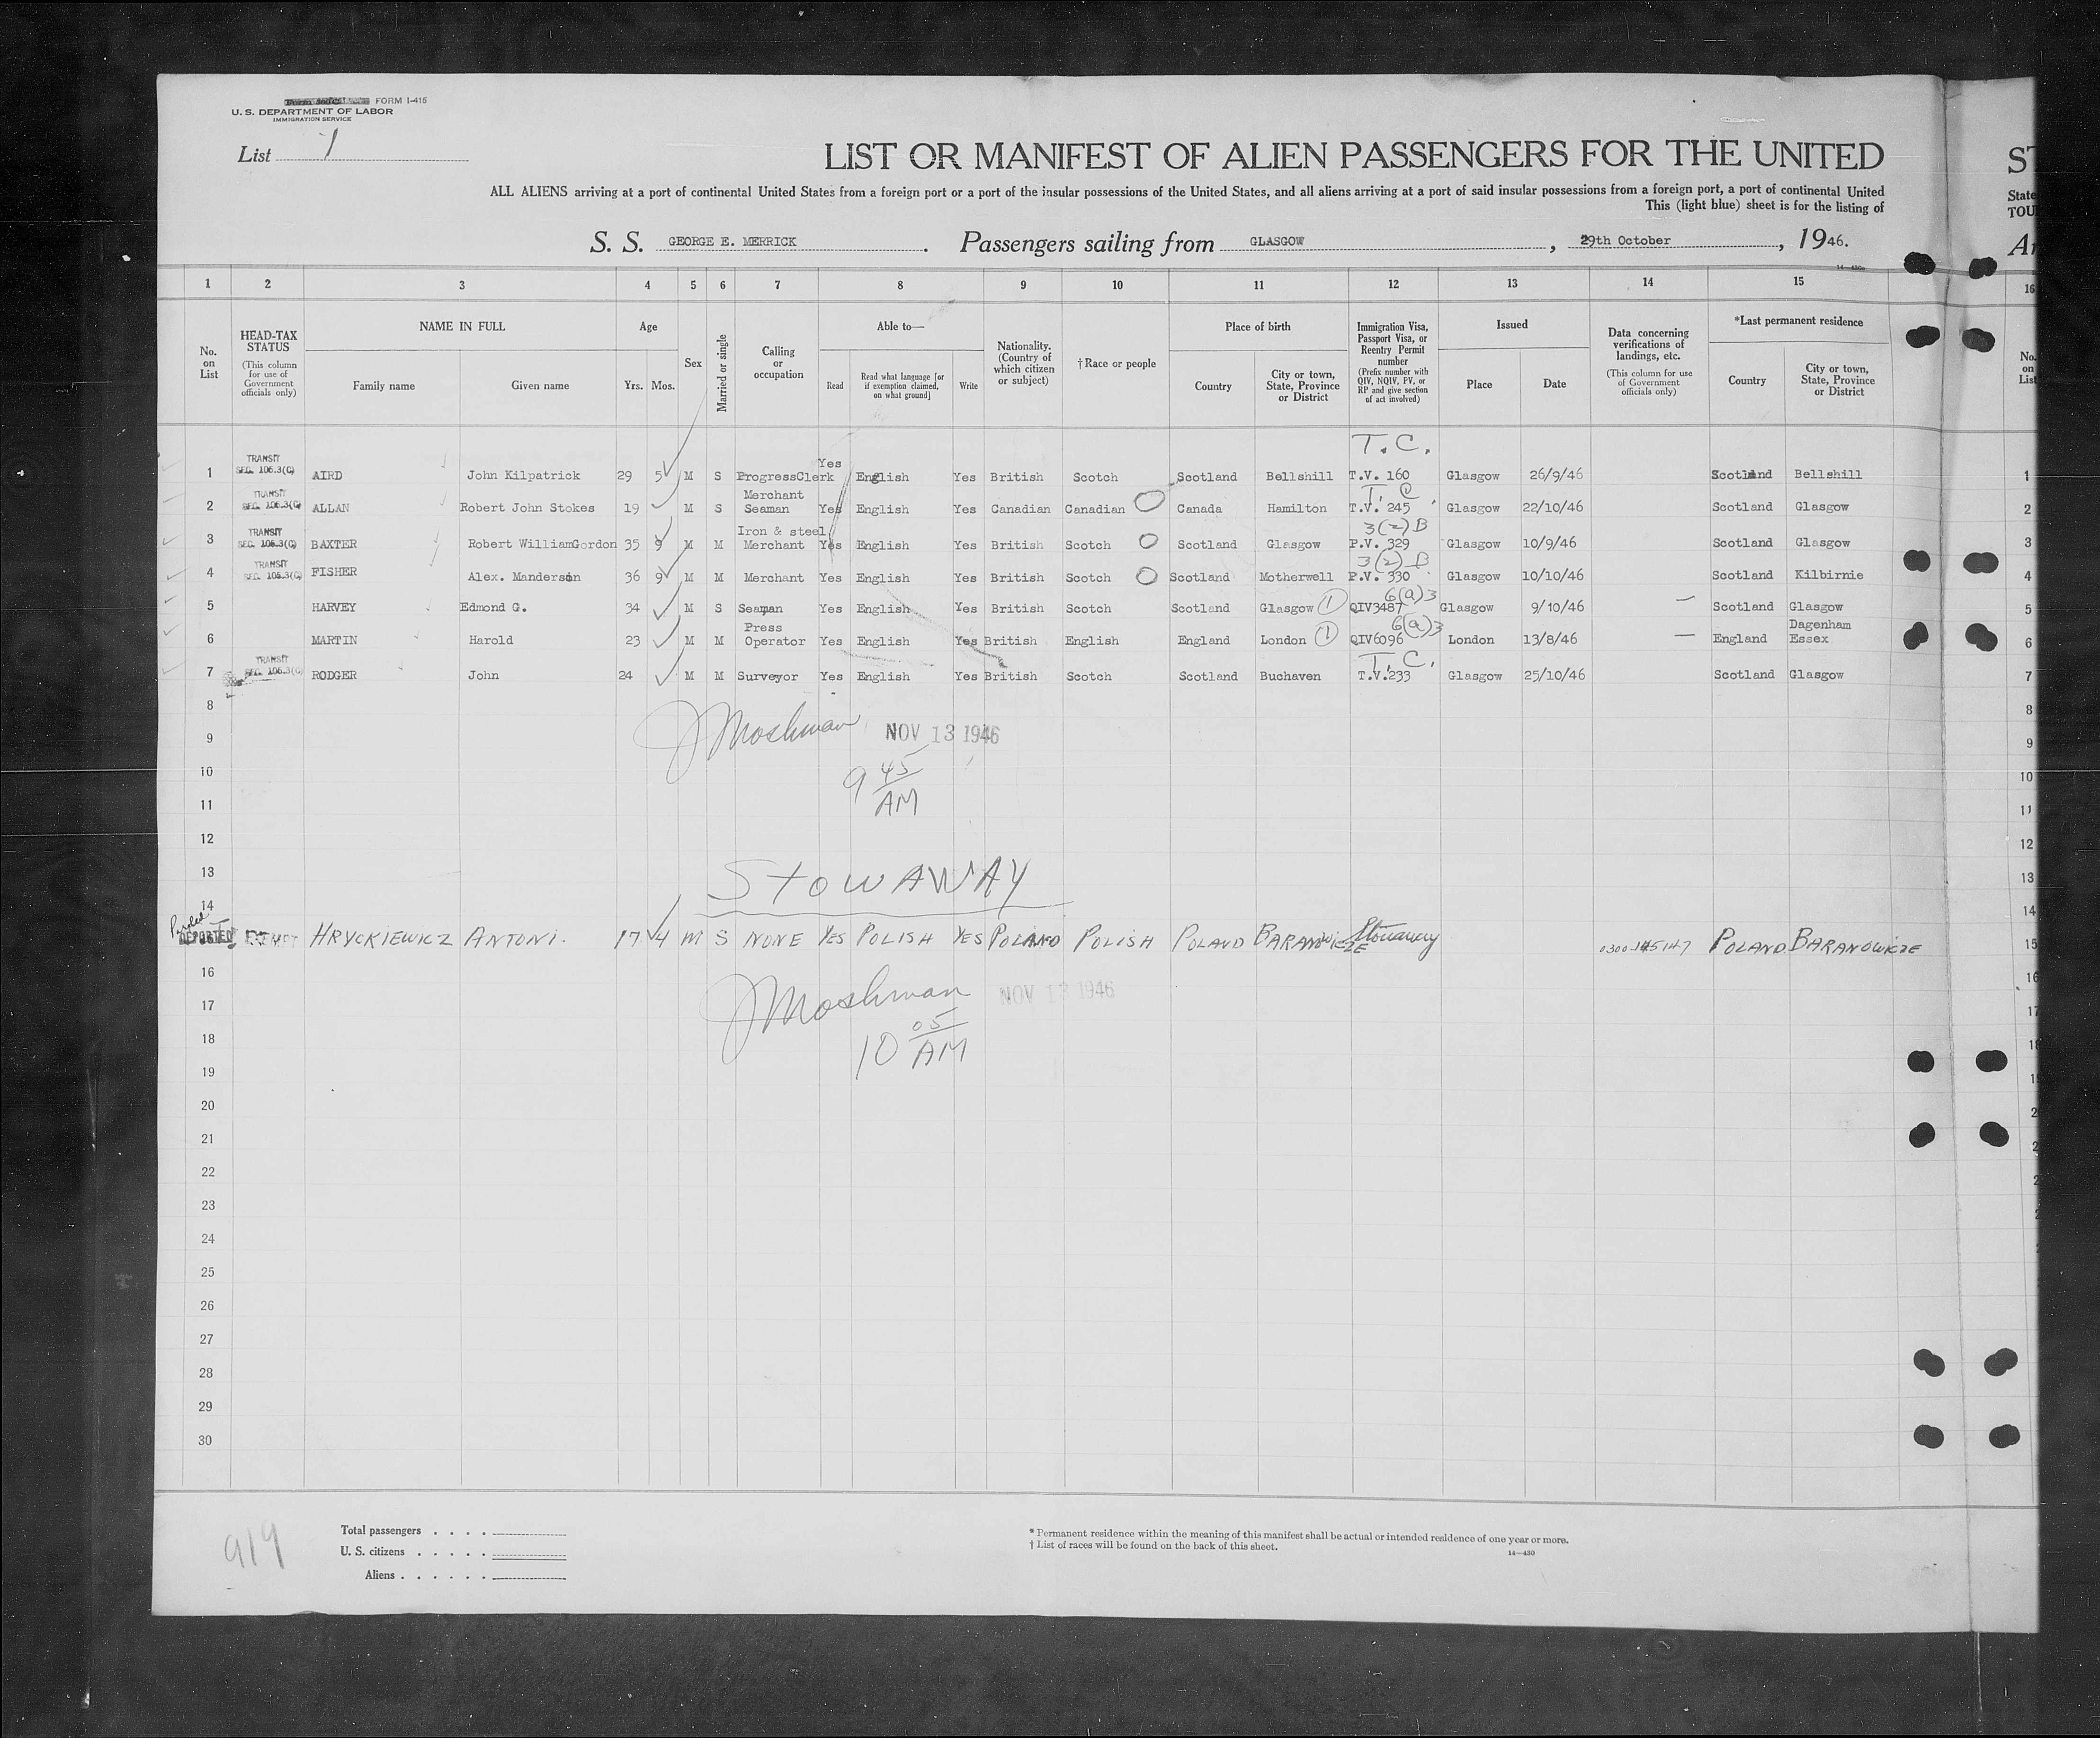 FORM I-415
U. S. DEPARTMENT OF LABOR
IMMIGRATION SERVICE
List 1
LIST OR MANIFEST OF ALIEN PASSENGERS FOR THE UNITED
ST
ALL ALIENS arriving at a port of continental United States from a foreign port or a port of the insular possessions of the United States, and all aliens arriving at a port of said insular possessions from a foreign port, a port of continental United
State
This (light blue) sheet is for the listing of
TOU
S. S. GEORGE E. MERRICK. Passengers sailing from GLASGOW, 29th October, 1946.
Ar
1 2 3 4 5 6 7 8 9 10 11 12 13 14 15 16
No. on List
HEAD-TAX STATUS (This column for use of Government officials only)
NAME IN FULL Family name Given name
Age Yrs. Mos.
Sex
Married or single
Calling or occupation
Able to— Read Read what language [or if exemption claimed, on what ground] Write
Nationality. (Country of which citizen or subject)
† Race or people
Place of birth Country City or town, State, Province or District
Immigration Visa, Passport Visa, or Reentry Permit number (Prefix number with QIV, NQIV, PV, or RP and give section of act involved)
Issued Place Date
Data concerning verifications of landings, etc. (This column for use of Government officials only)
*Last permanent residence Country City or town, State, Province or District
No. on List
T.C.
1 TRANSIT SEC. 106.3(C) AIRD John Kilpatrick 29 5 M S ProgressClerk Yes English Yes British Scotch Scotland Bellshill T.V. 160 Glasgow 26/9/46 Scotland Bellshill 1
T.C.
2 TRANSIT SEC. 106.3(C) ALLAN Robert John Stokes 19 M S Merchant Seaman Yes English Yes Canadian Canadian Canada Hamilton T.V. 245 Glasgow 22/10/46 Scotland Glasgow 2
3(2)B
3 TRANSIT SEC. 106.3(C) BAXTER Robert WilliamGordon 35 9 M M Iron & steel Merchant Yes English Yes British Scotch Scotland Glasgow P.V. 329 Glasgow 10/9/46 Scotland Glasgow 3
3(2)B
4 TRANSIT SEC. 106.3(C) FISHER Alex. Manderson 36 9 M M Merchant Yes English Yes British Scotch Scotland Motherwell P.V. 330 Glasgow 10/10/46 Scotland Kilbirnie 4
6(a)3
5 HARVEY Edmond G. 34 M S Seaman Yes English Yes British Scotch Scotland Glasgow 1 QIV3487 Glasgow 9/10/46 — Scotland Glasgow 5
6(a)3
6 MARTIN Harold 23 M M Press Operator Yes English Yes British English England London 1 QIV6096 London 13/8/46 — England Dagenham Essex 6
T.C.
7 TRANSIT SEC. 106.3(C) RODGER John 24 M M Surveyor Yes English Yes British Scotch Scotland Buchaven T.V.233 Glasgow 25/10/46 Scotland Glasgow 7
8 8
9 J Moshman NOV 13 1946 9
10 9 45 AM 10
11 11
12 12
13 STOWAWAY 13
14 14
DEPORTED EXEMPT HRYCKIEWICZ ANTONI. 17 4 M S NONE YES POLISH YES POLAND POLISH POLAND BARANOWICZE Stowaway 0300-145147 POLAND BARANOWICZE 15
16 16
17 J Moshman NOV 13 1946 17
18 10 05 AM 18
19
20
21
22
23
24
25
26
27
28
29
30
919
Total passengers
U. S. citizens
Aliens
* Permanent residence within the meaning of this manifest shall be actual or intended residence of one year or more.
† List of races will be found on the back of this sheet.
14—430